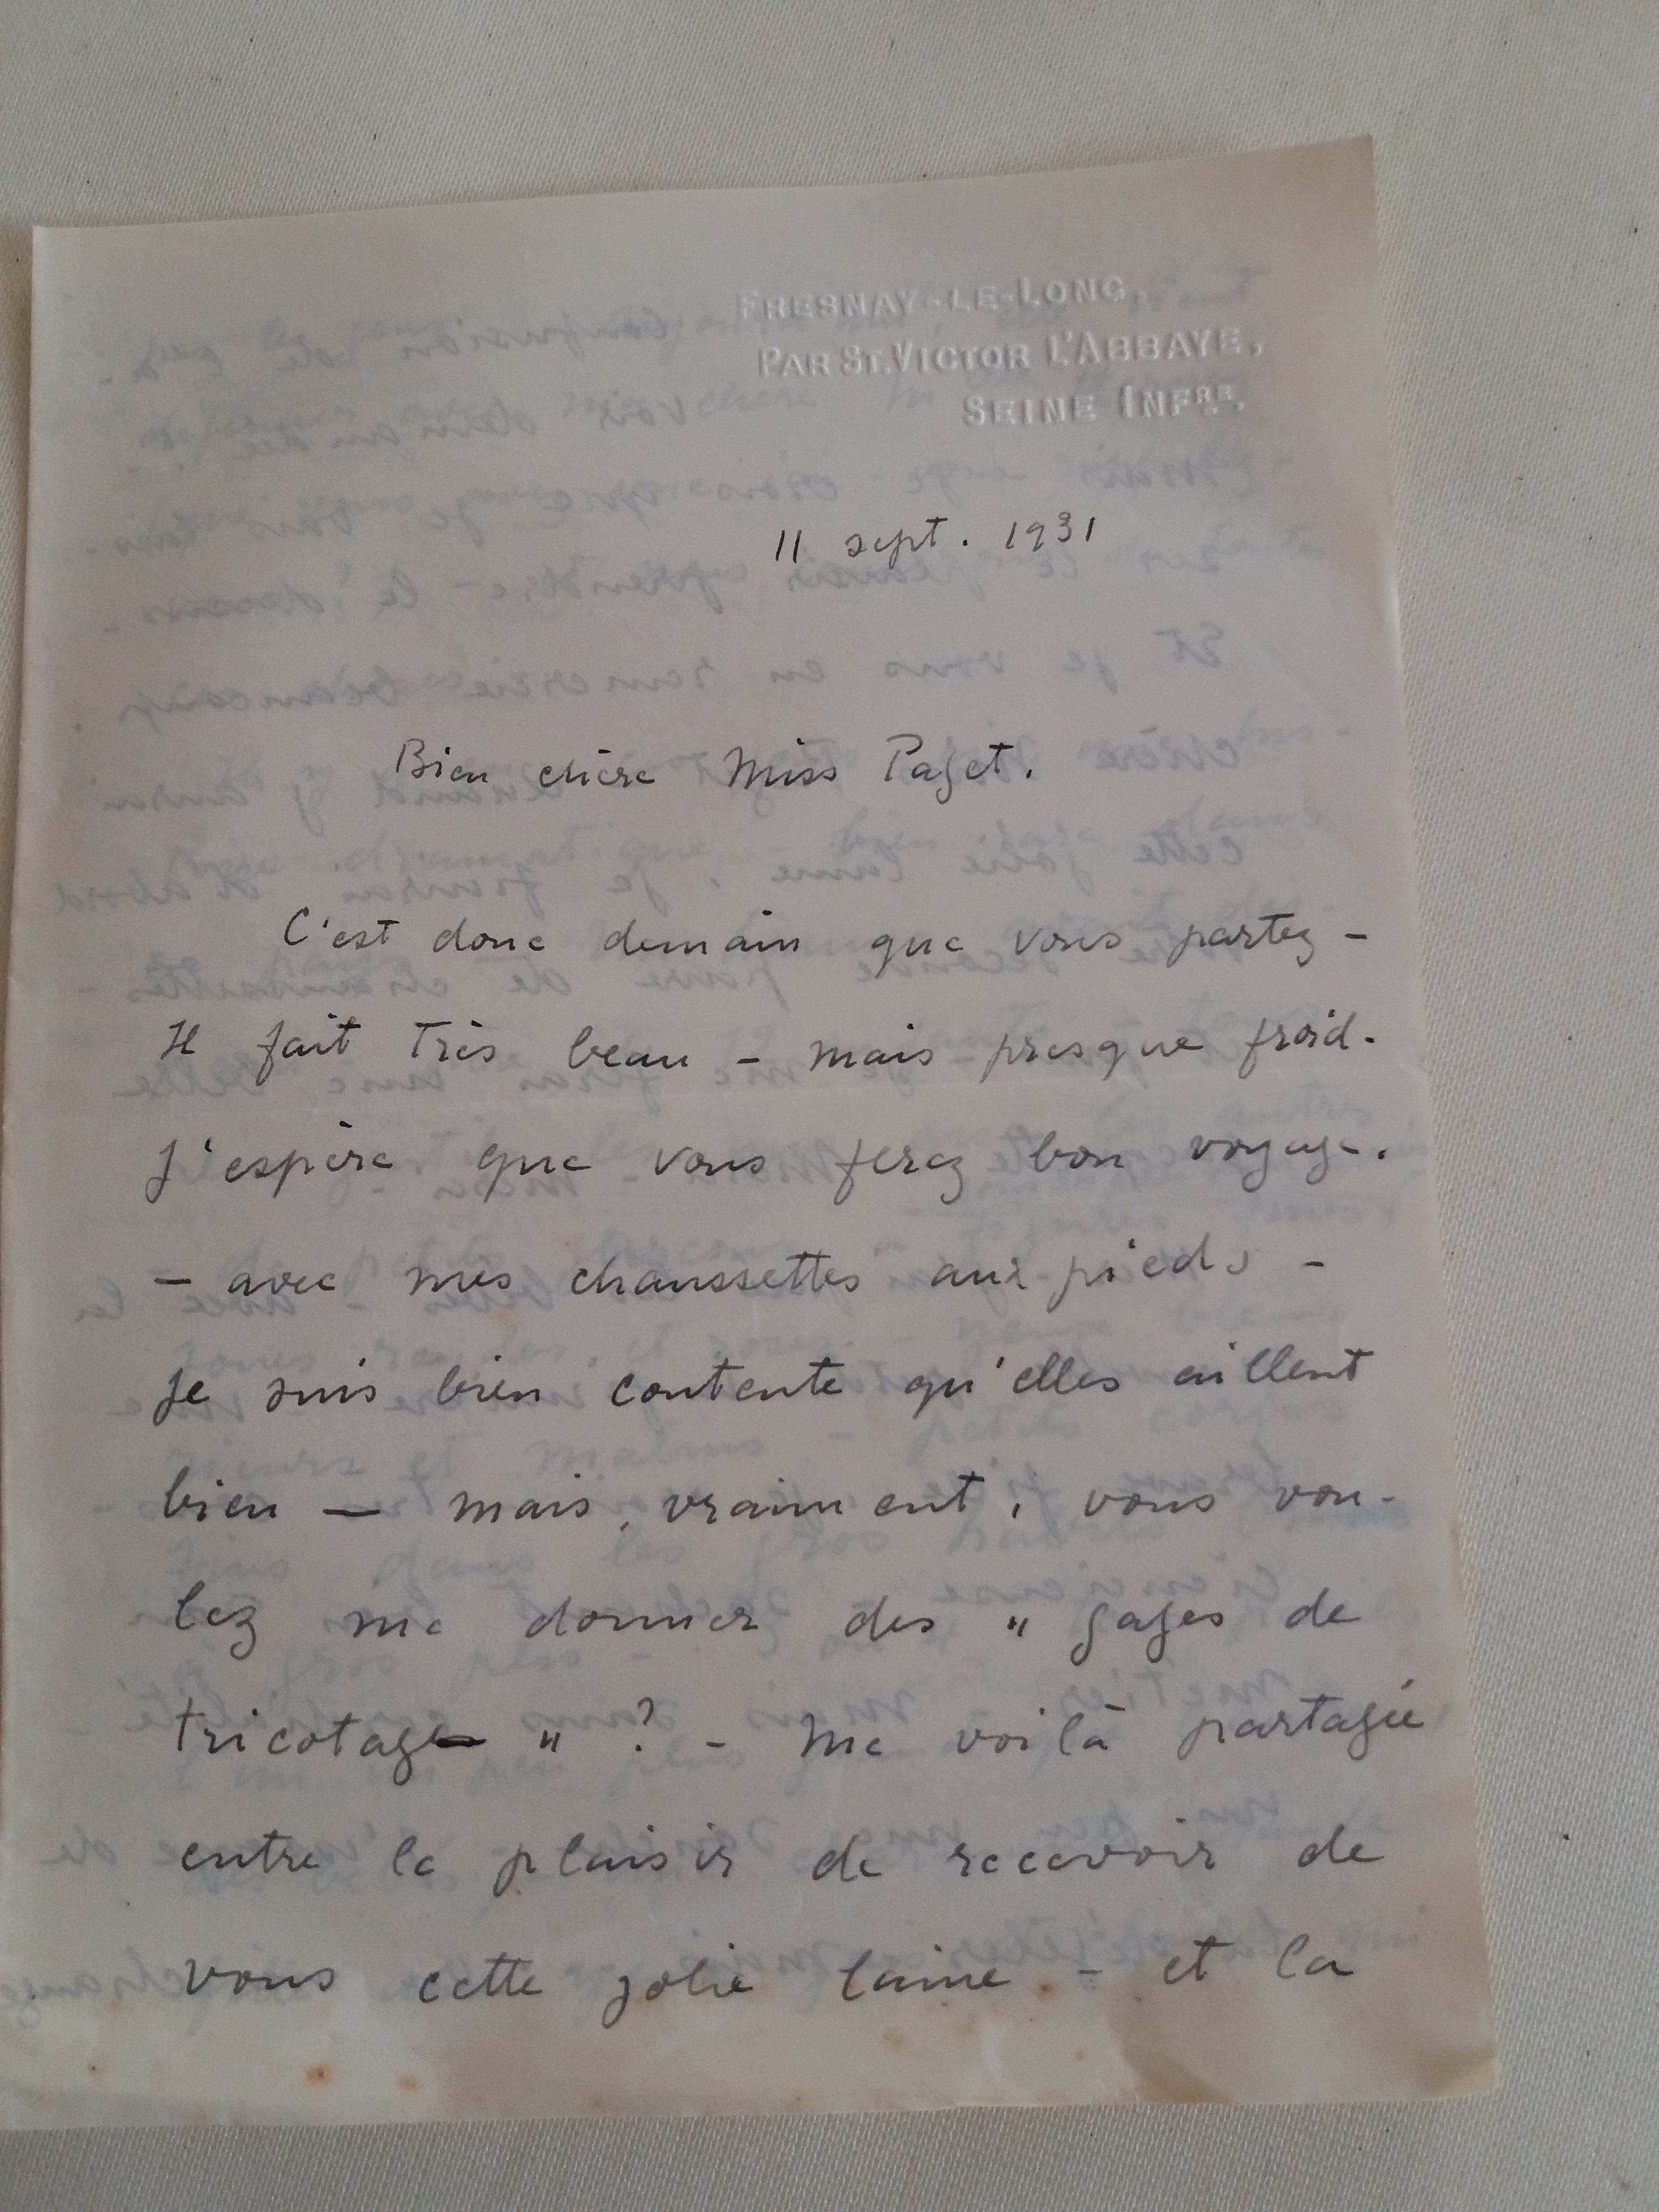 FRESNAY-LE-LONG,
PAR ST. VICTOR L'ABBAYE,
SEINE INFRE.
11 sept. 1931
Bien chère Miss Paget.
C'est donc demain que vous partez -
Il fait très beau - mais presque froid.
J'espère que vous ferez bon voyage.
- avec mes chaussettes aux pieds -
Je suis bien contente qu'elles aillent
bien — mais, vraiment, vous vou-
lez me donner des " gages de
tricotage " ? - Me voilà partagée
entre le plaisir de recevoir de
vous cette jolie laine - et la